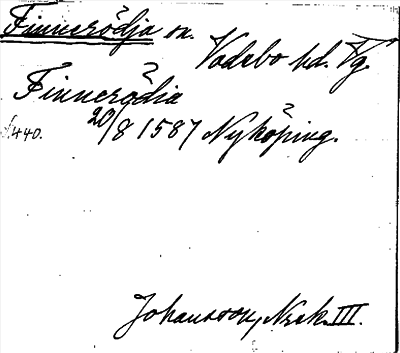 Finnerödja sn. Vadsbo hd. Vg.
Finnerödia
440. 20/8 1587 Nyköping.
Johansson, Nsak. III.